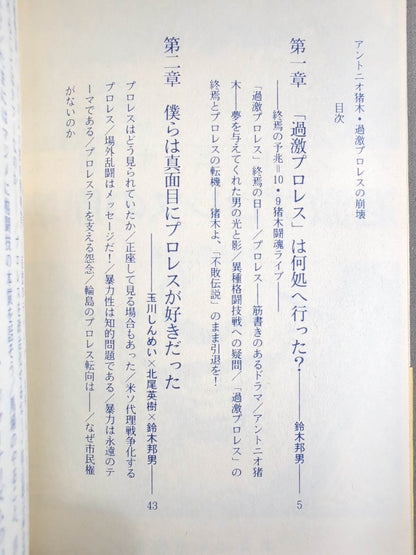 アントニオ猪木・過激プロレスの崩壊
目次
第一章　「過激プロレス」は何処へ行った？——鈴木邦男——5
——終焉の予兆＝10・9猪木闘魂ライブ——
「過激プロレス」終焉の日——／プロレス——筋書きのあるドラマ／アントニオ猪
木——夢を与えてくれた男の光と影／異種格闘技戦への疑問／「過激プロレス」の
終焉とプロレスの転機——猪木よ、「不敗伝説」のまま引退を！
第二章　僕らは真面目にプロレスが好きだった
——玉川しんめい×北尾英樹×鈴木邦男——43
プロレスはどう見られていたか／正座して見る場合もあった／米ソ代理戦争化する
プロレス／場外乱闘はメッセージだ！／暴力性は知的問題である／暴力は永遠のテ
ーマである／プロレスラーを支える怨念／輪島のプロレス転向は——／なぜ市民権
がないのか